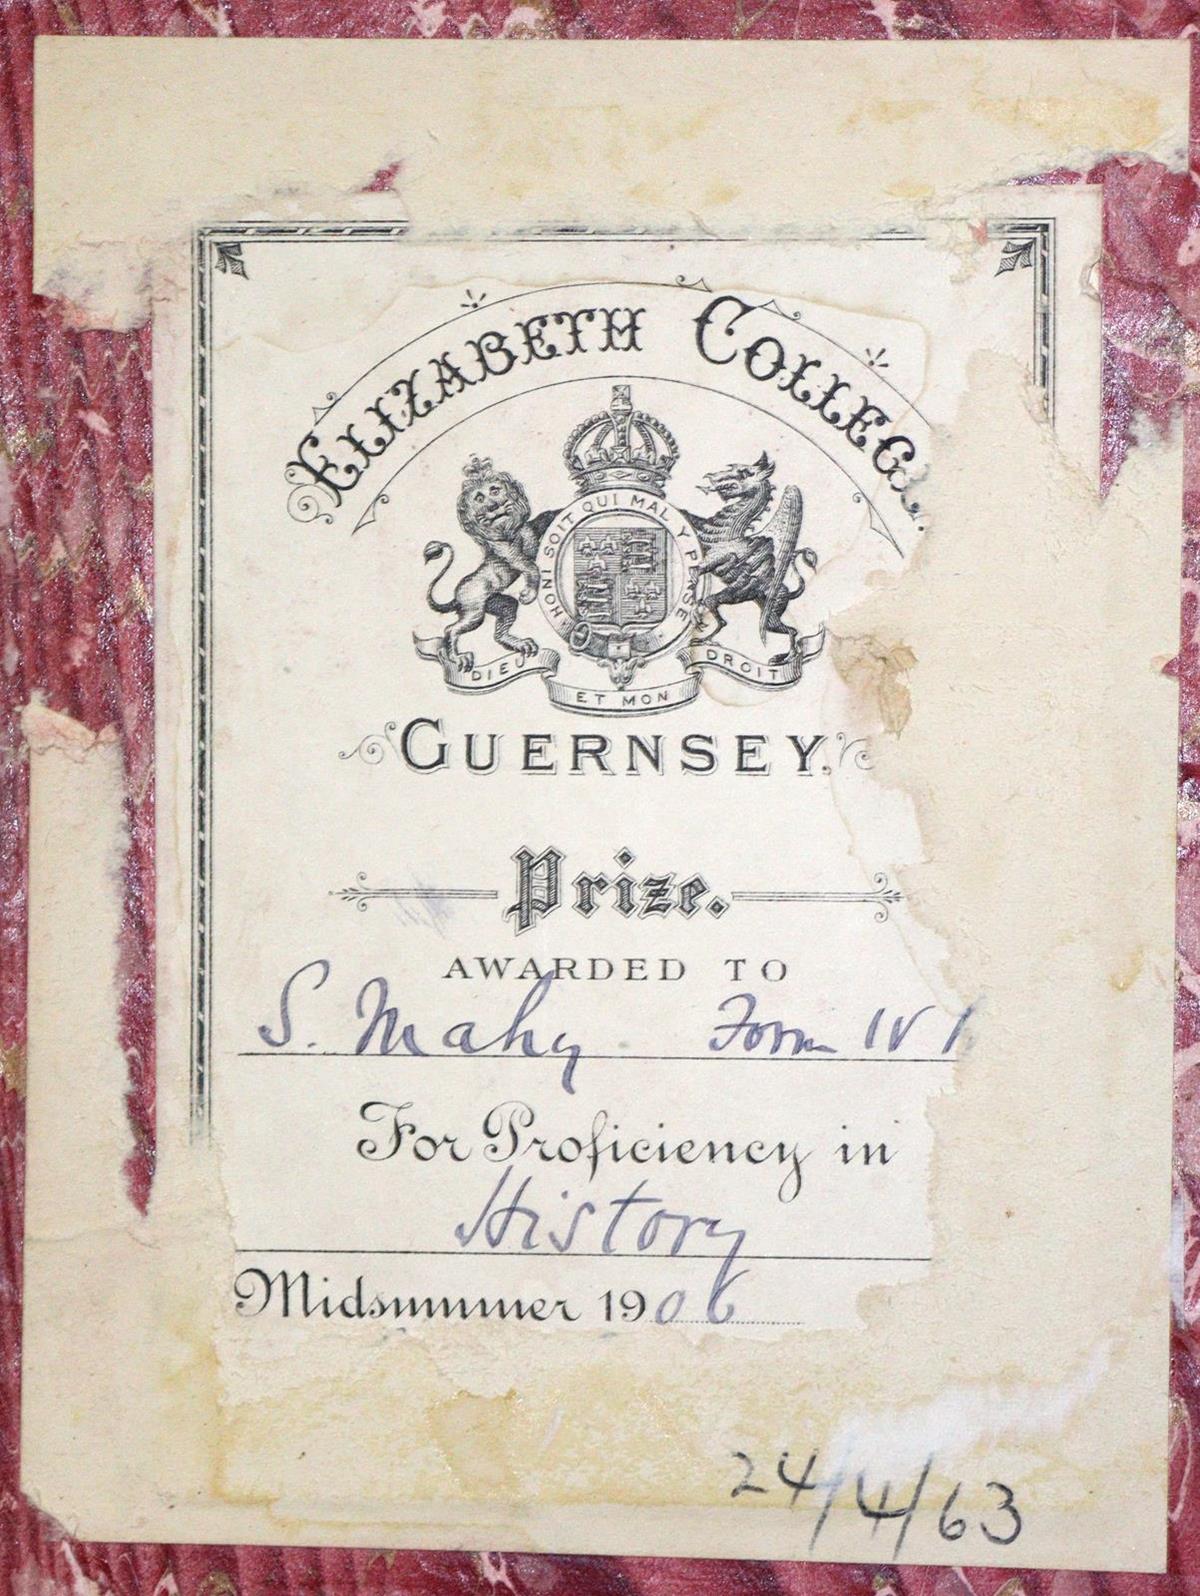 ELIZABETH COLLEGE
HONI SOIT QUI MAL Y PENSE
DIEU ET MON DROIT
GUERNSEY.
Prize.
AWARDED TO
S. Mahy Form IV
For Proficiency in
History
Midsummer 1906
24/4/63